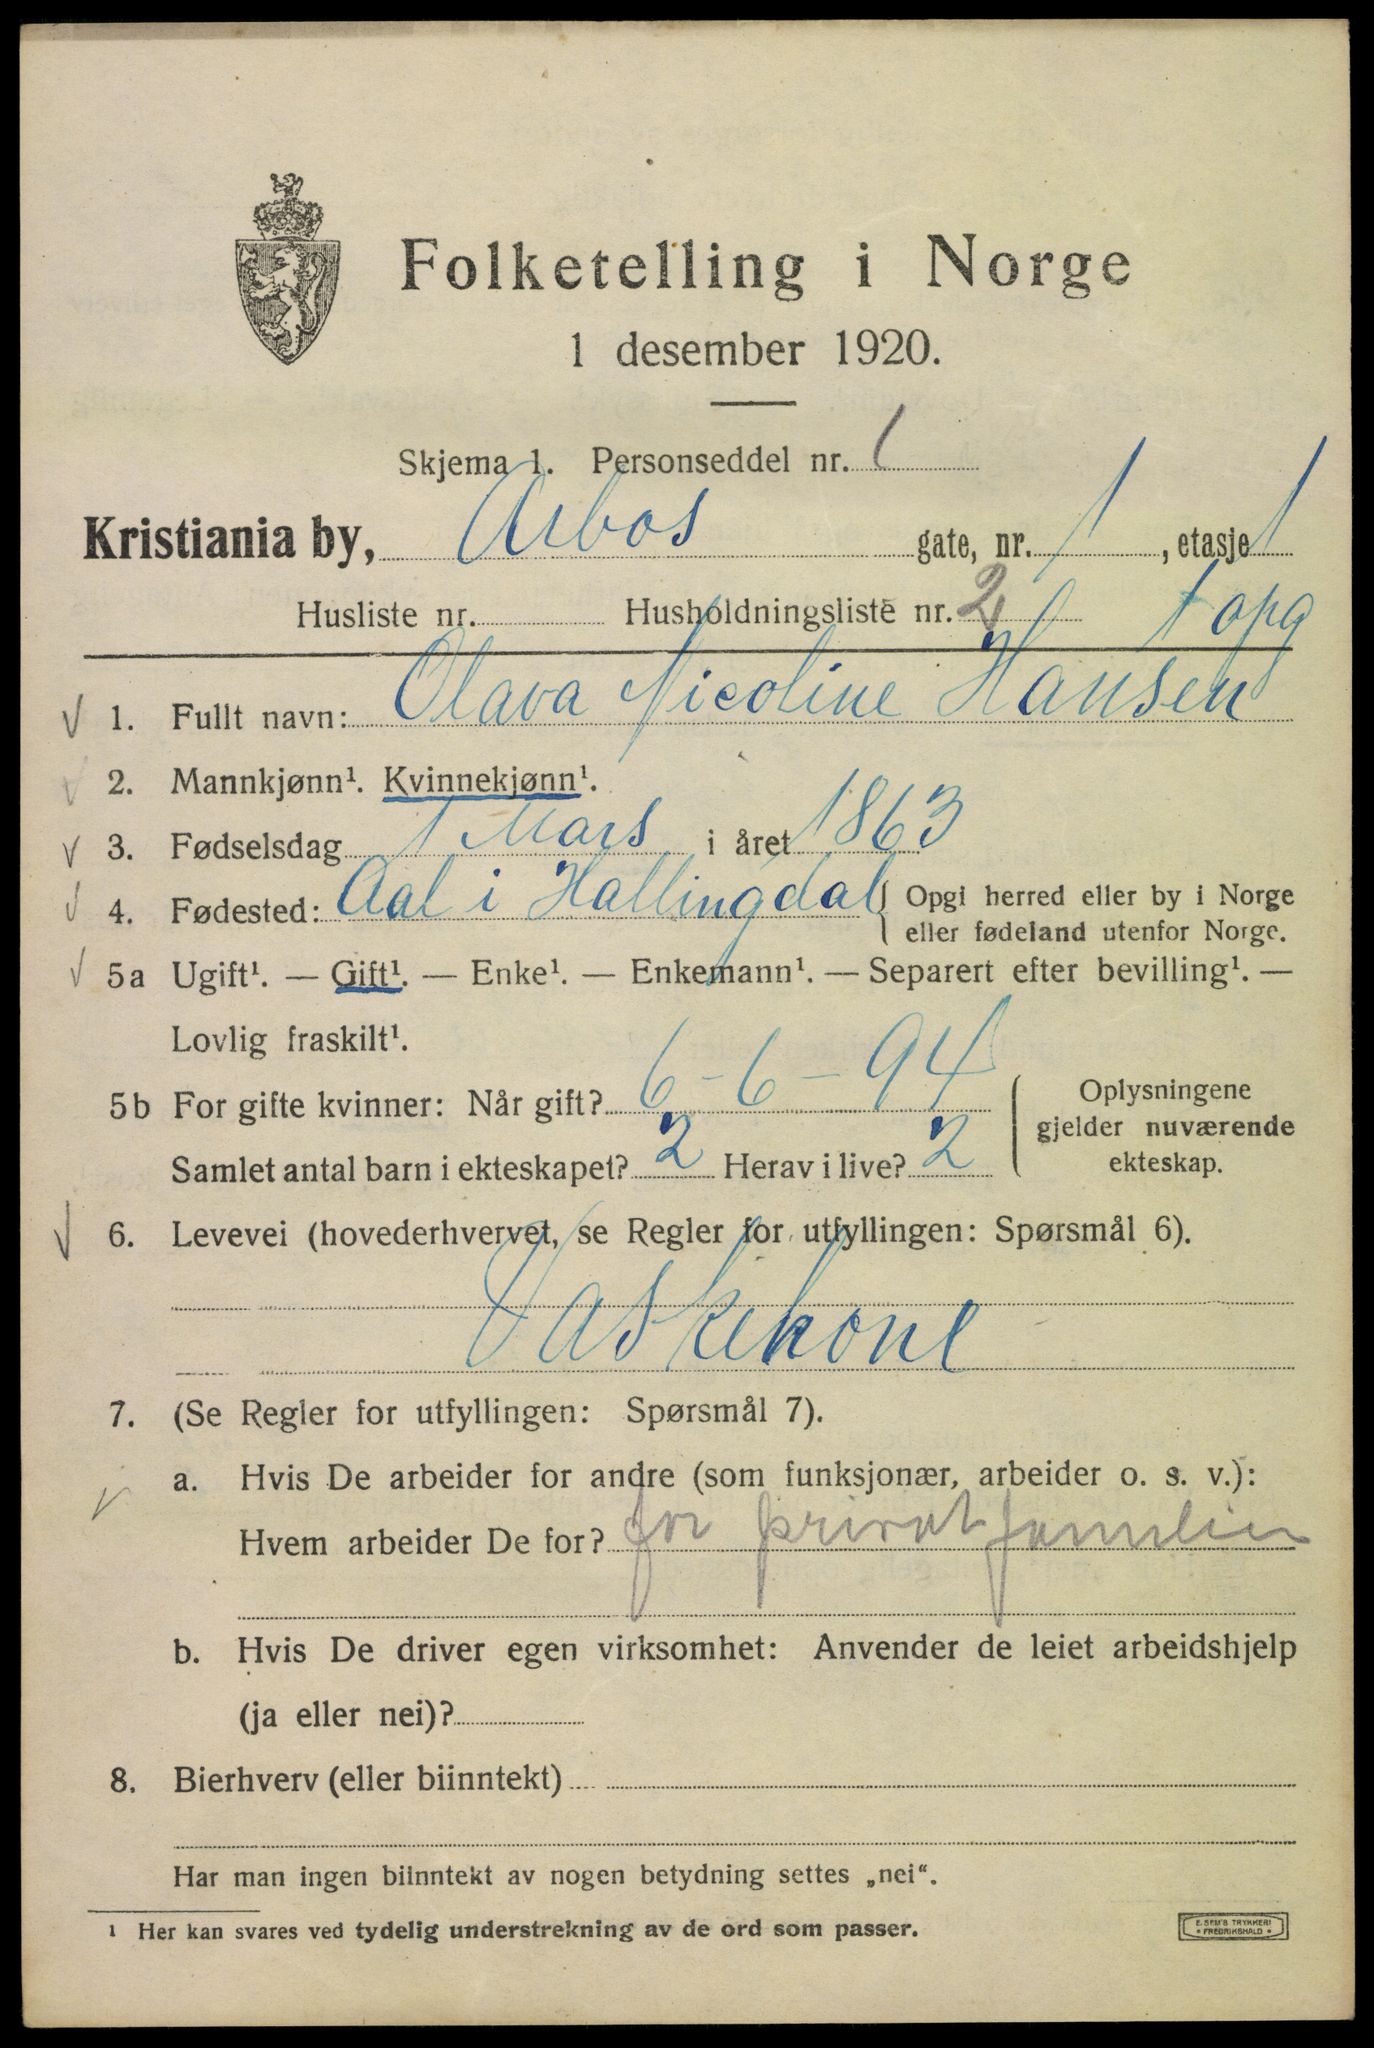 Folketelling i Norge
1 desember 1920.
Skjema 1. Personseddel nr. 1
Kristiania by, Arbos gate, nr. 1, etasje 1
Husliste nr. Husholdningsliste nr. 2 1 opg
1. Fullt navn: Olava Nicoline Hansen
2. Mannkjønn¹. Kvinnekjønn¹.
3. Fødselsdag 1 Mars i året 1863
4. Fødested: Aal i Hallingdal Opgi herred eller by i Norge
eller fødeland utenfor Norge.
5a Ugift¹. — Gift¹. — Enke¹. — Enkemann¹. — Separert efter bevilling¹. —
Lovlig fraskilt¹.
5b For gifte kvinner: Når gift? 6-6-94
Samlet antal barn i ekteskapet? 2 Herav i live? 2
Oplysningene
gjelder nuværende
ekteskap.
6. Levevei (hovederhvervet, se Regler for utfyllingen: Spørsmål 6).
Vaskekone
7. (Se Regler for utfyllingen: Spørsmål 7).
a. Hvis De arbeider for andre (som funksjonær, arbeider o. s. v.):
Hvem arbeider De for? for privat familier
b. Hvis De driver egen virksomhet: Anvender de leiet arbeidshjelp
(ja eller nei)?
8. Bierhverv (eller biinntekt)
Har man ingen biinntekt av nogen betydning settes „nei“.
¹ Her kan svares ved tydelig understrekning av de ord som passer.
E. SEM'S TRYKKERI
• FREDRIKSHALD •